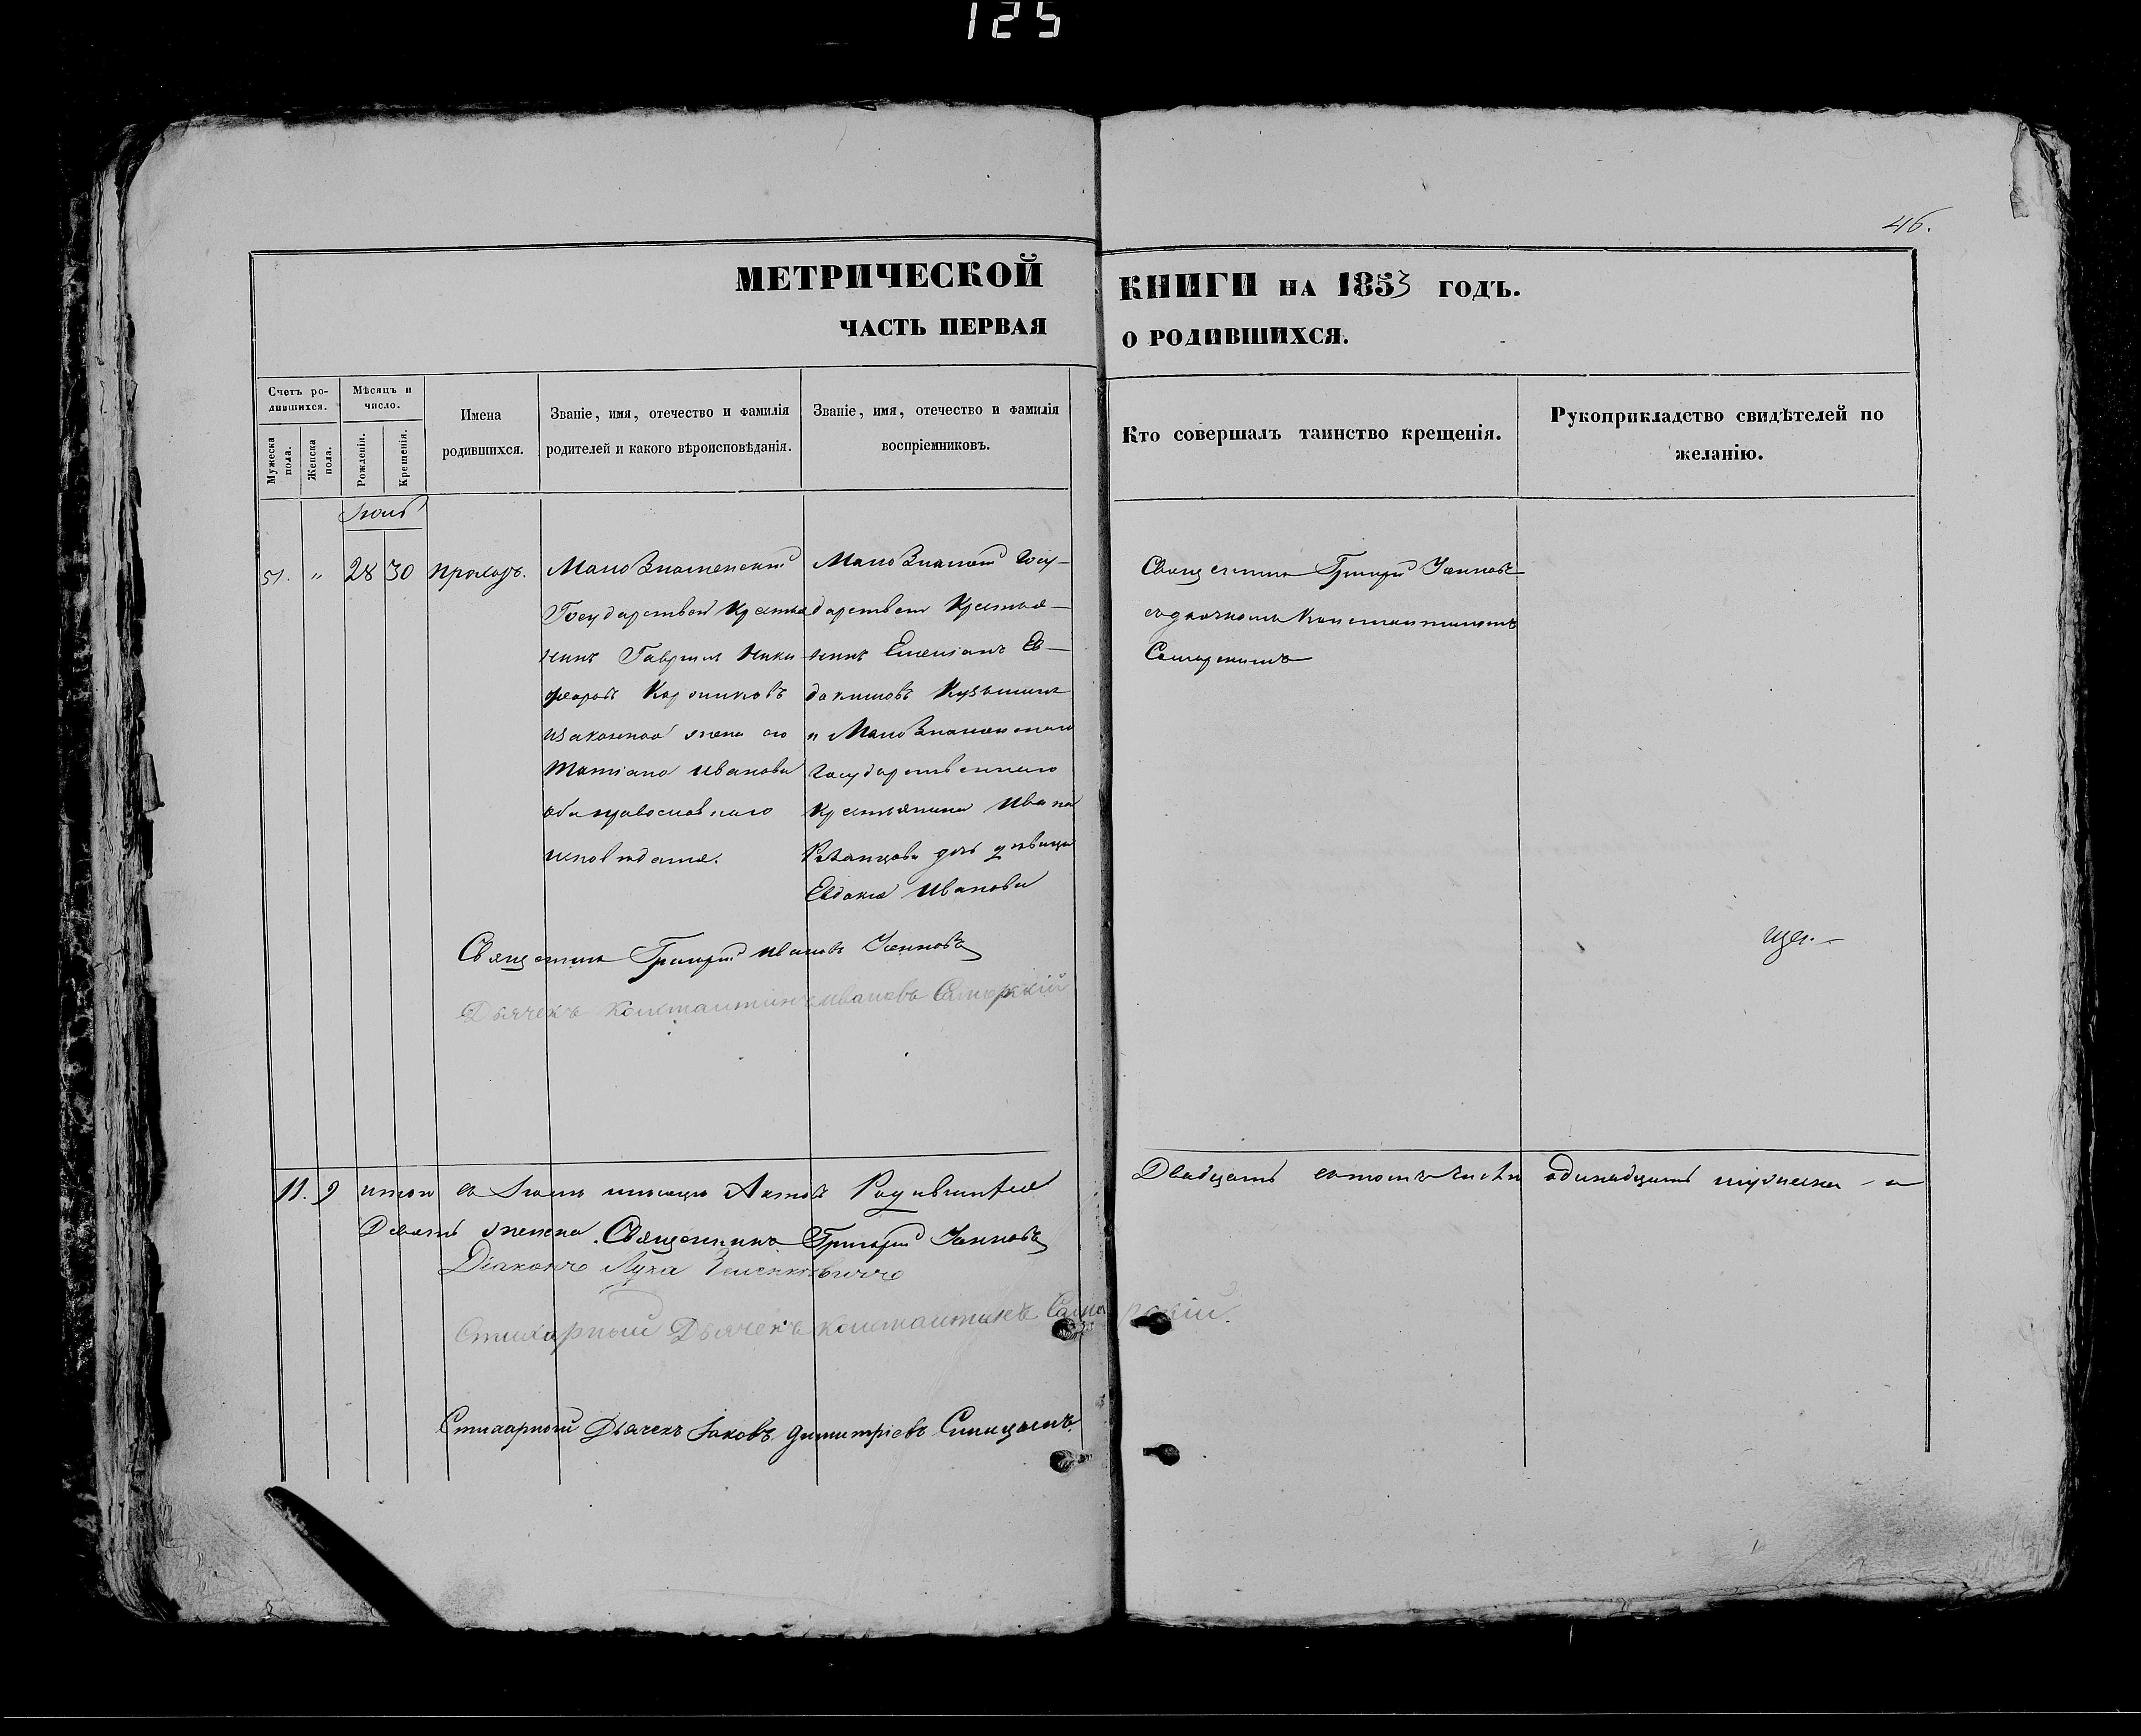 125
46.
МЕТРИЧЕСКОЙ КНИГИ НА 1853 ГОДЪ.
ЧАСТЬ ПЕРВАЯ О РОДИВШИХСЯ.
Счетъ ро-
дившихся.
Мужеска пола.
Женска пола.
Мѣсяцъ и
число.
Рожденія.
Крещенія.
Имена
родившихся.
Званіе, имя, отечество и фамилія
родителей и какого вѣроисповѣданія.
Званіе, имя, отечество и фамилія
воспріемниковъ.
Кто совершалъ таинство крещенія.
Рукоприкладство свидѣтелей по
желанію.
51. " 28 30
Мало Знаменскій
Государствен Крестья
нинъ Гавріилъ Ники
форовъ
изаконная жена его
Татіана Иванова
оба православнаго
исповѣданія.
Мало Знамен Госу-
дарствен Крестья-
нинъ Емеліанъ Ев-
докимовъ Кузьминъ
и Мало Знаменскаго
Государственнаго
Крестьянина Ивана
дочь дѣвица
Евдокія Иванова
Священникъ Григорій
съдьячкомъ Константиномъ
Самарскимъ
Священникъ Григорій Ивановъ
Дьячекъ Константинъ Ивановъ Самарскій
11. 9 итого въ мѣсяцѣ Актовъ Родившихся Двадцать втомъ числѣ одинадцать мужеска и
Девять женска. Священникъ Григорій
Діаконъ Лука
Стихарный Дьячекъ Константинъ Самарскій.
Стихарный Дьячекъ Іаковъ Димитріевъ Синицынъ.